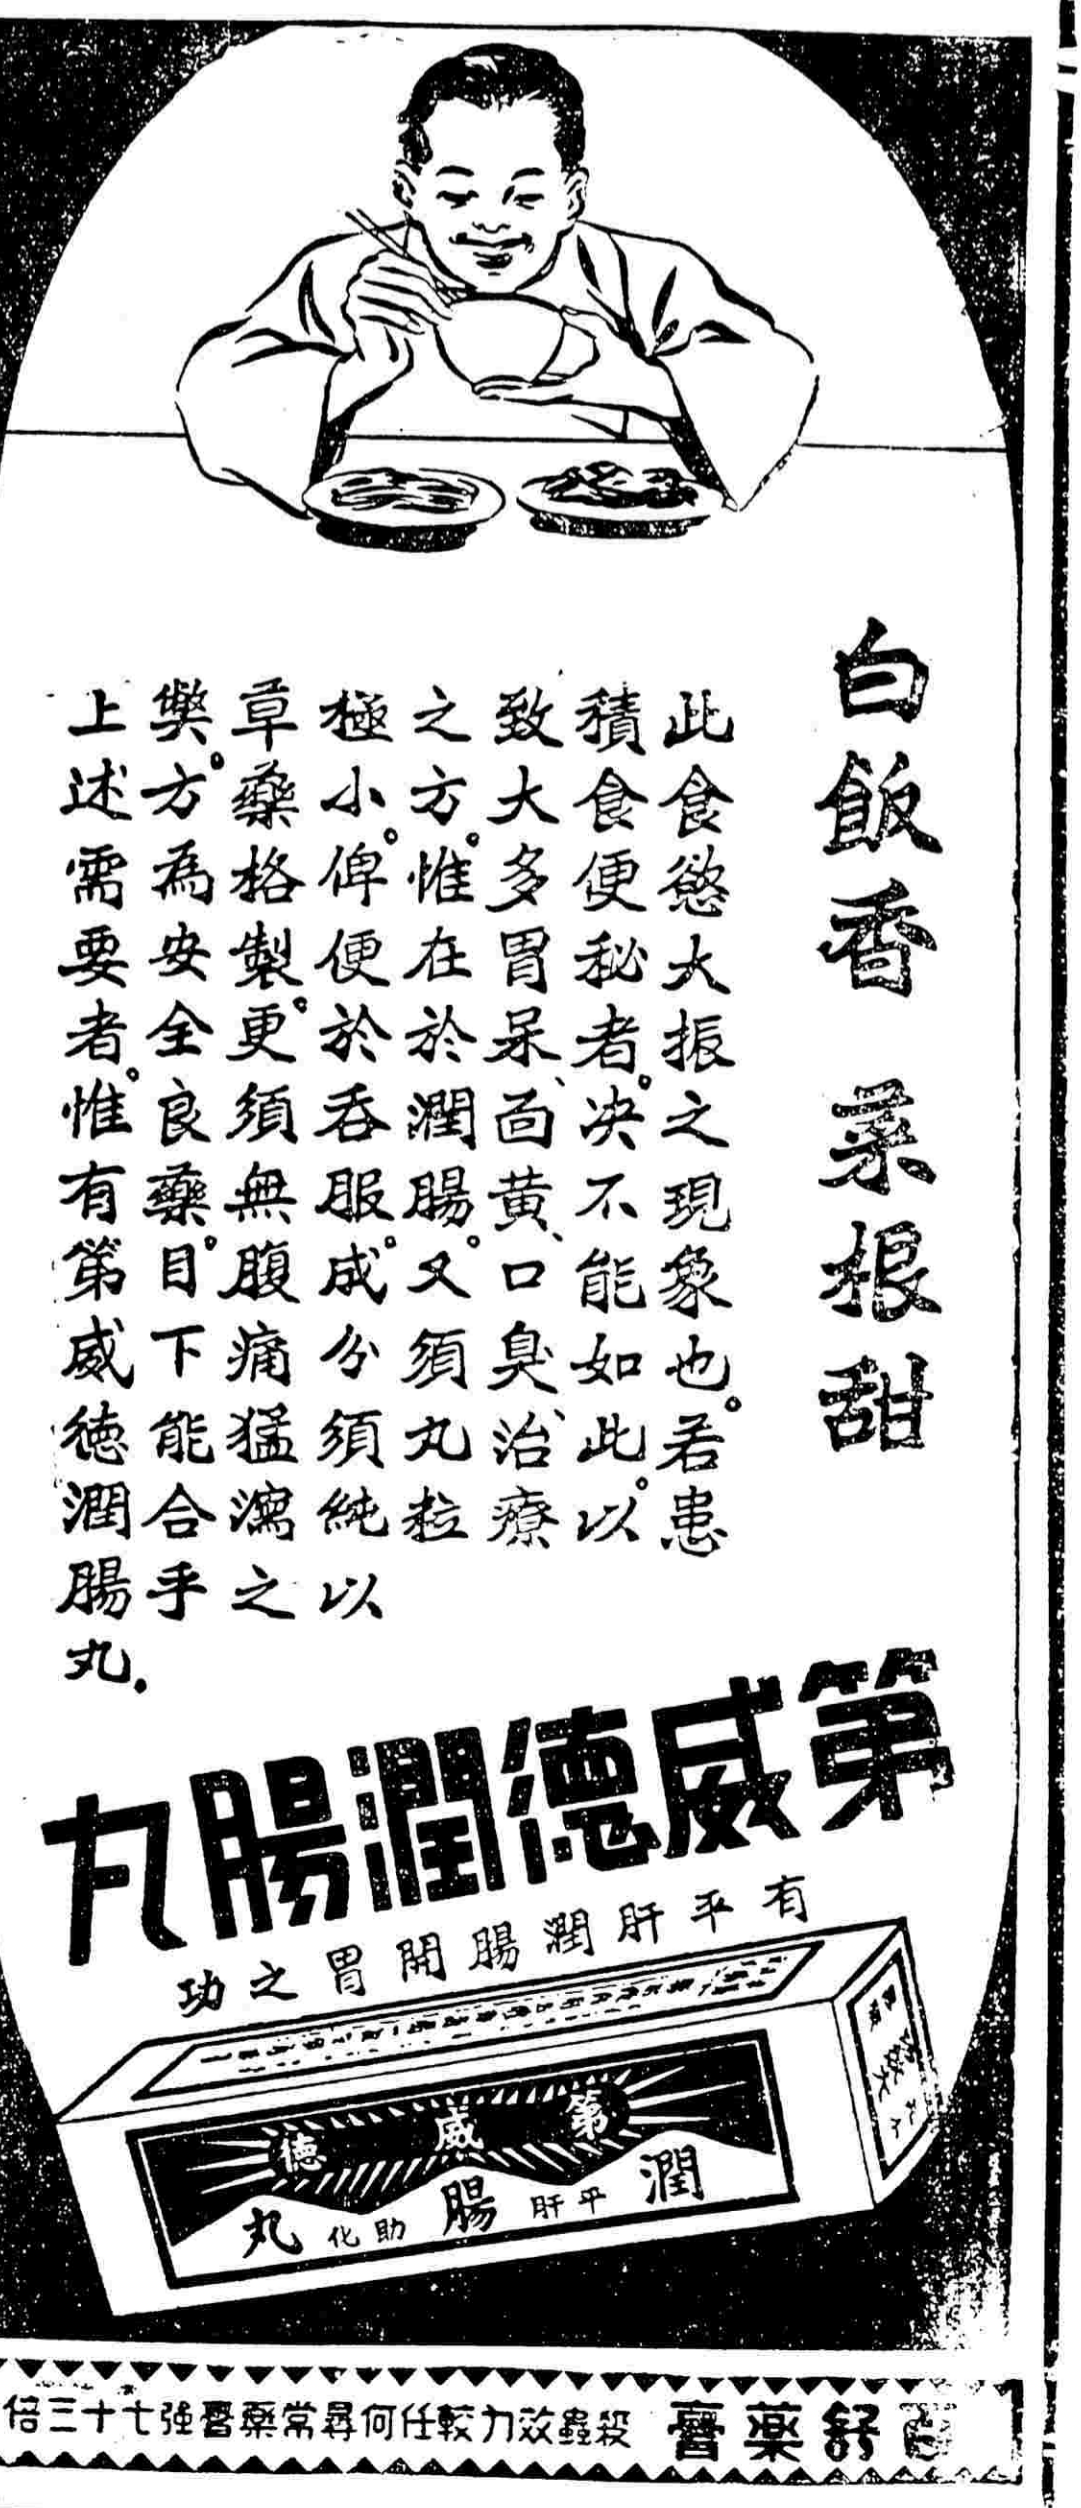 白飯香　菜根甜
此食慾大振之現象也。若患
積食便秘者。决不能如此。以
致大多胃呆、面黄、口臭、治療
之方。惟在於潤腸。又須丸粒
極小。俾便於吞服。成分須純以
草藥格製。更須無腹痛猛瀉之
弊。方為安全良藥。目下能合乎
上述需要者。惟有第威德潤腸丸.
第威德潤腸丸
有平肝潤腸開胃之功
第威德
潤平肝腸助化丸
舒藥膏
殺蟲效力較任何尋常藥膏强七十三倍